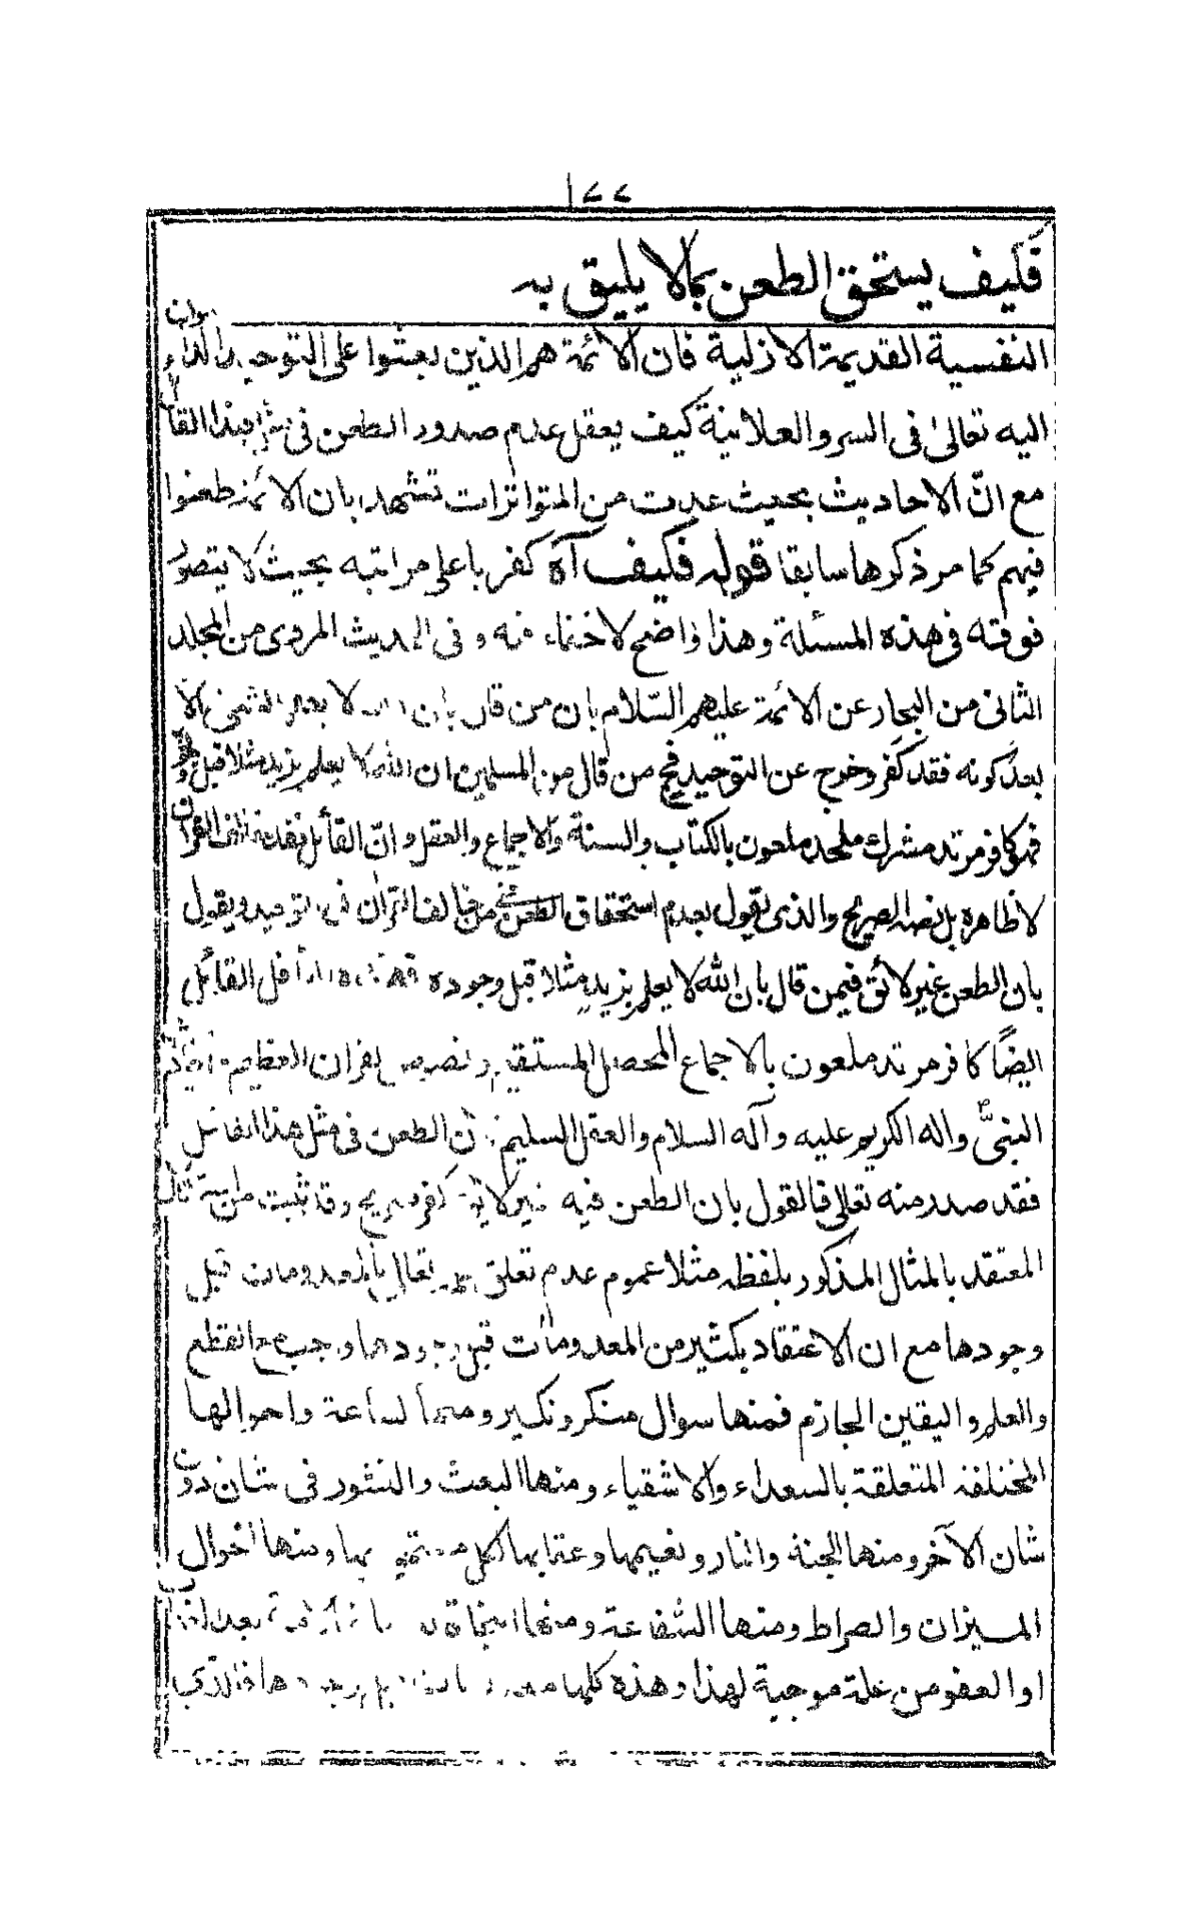 ١٧٧
فكيف يستحق الطعن بمالا يليق به
النفسية القديمة الازلية فان الائمة هم الذين بعثوا على التوحيد والداعون
اليه تعالىٰ فى السر والعلانية كيف يعقل عدم صدور الطعن فى هذا القائل
مع انّ الاحاديث بحيث عدت من المتواترات تشهد بان الائمة طعنوا
فيهم كما مر ذكرها سابقا قوله فكيف آه كفر باعلى مراتبه بحيث لا يتصور
فوقته فى هذه المسئلة وهذا واضح لا خفاء فيه و فى الحديث المروى من المجلد
الثانى من البحار عن الائمة عليهم السّلام بان من قال بان الله لا يعلم الشئ الا
بعد كونه فقد كفر وخرج عن التوحيد فح من قال من المسلمين ان الله لا يعلم بزيد مثلا قبل وجوده
فهو كافر مرتد مشرك ملحد ملعون بالكتاب والسنة والاجماع والعقل و انّ القائل فقد خالف القران
لا ظاهره بل نصه الصريح والذى يقول بعدم استحقاق الطعن من خالف القران فى توحيده ويقول
بان الطعن غير لائق فيمن قال بان الله لا يعلم بزيدٍ مثلا قبل وجوده القائل
ايضًا كافر مرتد ملعون بالاجماع المحصل المستقيم و نص القران العظيم
النبىّ واله الكريم عليه وآله السلام والعقل السليم ان الطعن فى مثل هذا القائل
فقد صدر منه تعالى فالقول بان الطعن فيه غير لائق كفر صريح وقد ثبت من
المعتقد بالمثال المذكور بلفظه مثلا عموم عدم تعلق علمه تعالى بالمعدومات قبل
وجودها مع ان الاعتقاد بكثير من المعدومات قبل وجودها واجب مع القطع
والعلم واليقين الجازم فمنها سوال منكر ونكير ومنها الساعة واحوالها
المختلفة المتعلقة بالسعداء والاشقياء ومنها البعث والنشور فى شان دون
شان الآخر ومنها الجنة والنار ونعيمها وعقابها لكل مستحق بها ومنها احوال
الميزان والصراط ومنها الشفاعة ومنها النجاة بعد
او العفو من علة موجبة لهذا وهذه كلها فالذى